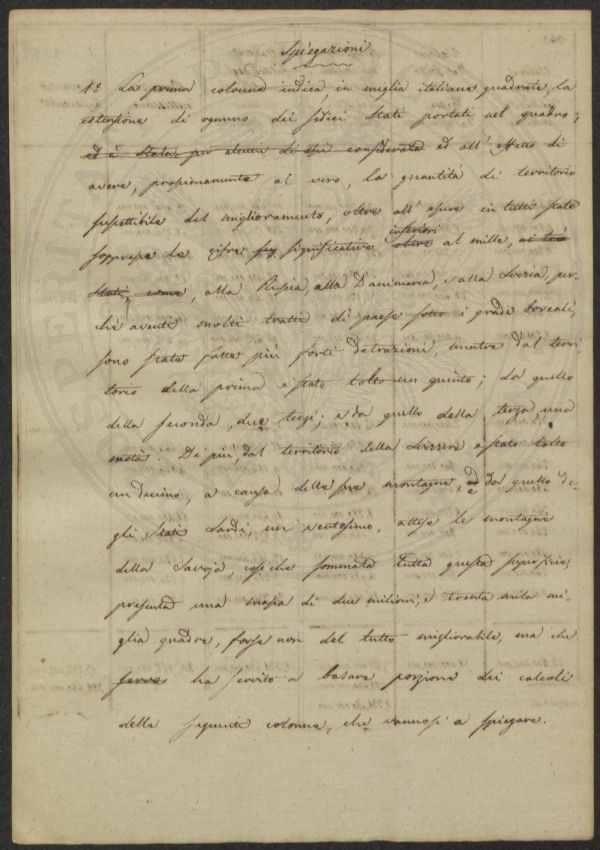 Spiegazioni.
1º La prima colonna indica, in miglia italiane quadrate, la
estensione di ognuno dei sedici Stati portati nel quadro;
ed è stata per alcuni di essi considerata ed all'effetto di
avere, prossimamente al vero, la quantità di territorio
suscettibile del miglioramento, oltre all'essere in tutti state
soppresse le cifre significative inferiori oltre al mille, ai tre
Stati, come, alla Russia, alla Danimarca, e alla Svezia, per-
chè aventi molti tratti di paese sotto i gradi boreali,
sono state fatte più forti detrazioni, mentre dal terri-
torio della prima è stato tolto un quinto; da quello
della seconda, due terzi; e da quello della terza, una
metà. Di più, dal territorio della Svizzera è stato tolto
un decimo, a causa delle sue montagne, ed da quello de-
gli Stati Sardi, un ventesimo, attese le montagne
della Savoja, cosicchè sommata tutta questa superficie,
presenta una massa di due milioni, e trenta mila mi-
glia quadre, forse non del tutto migliorabile, ma che
ha servito a basare porzione dei calcoli
delle seguenti colonne, che vannosi a spiegare.